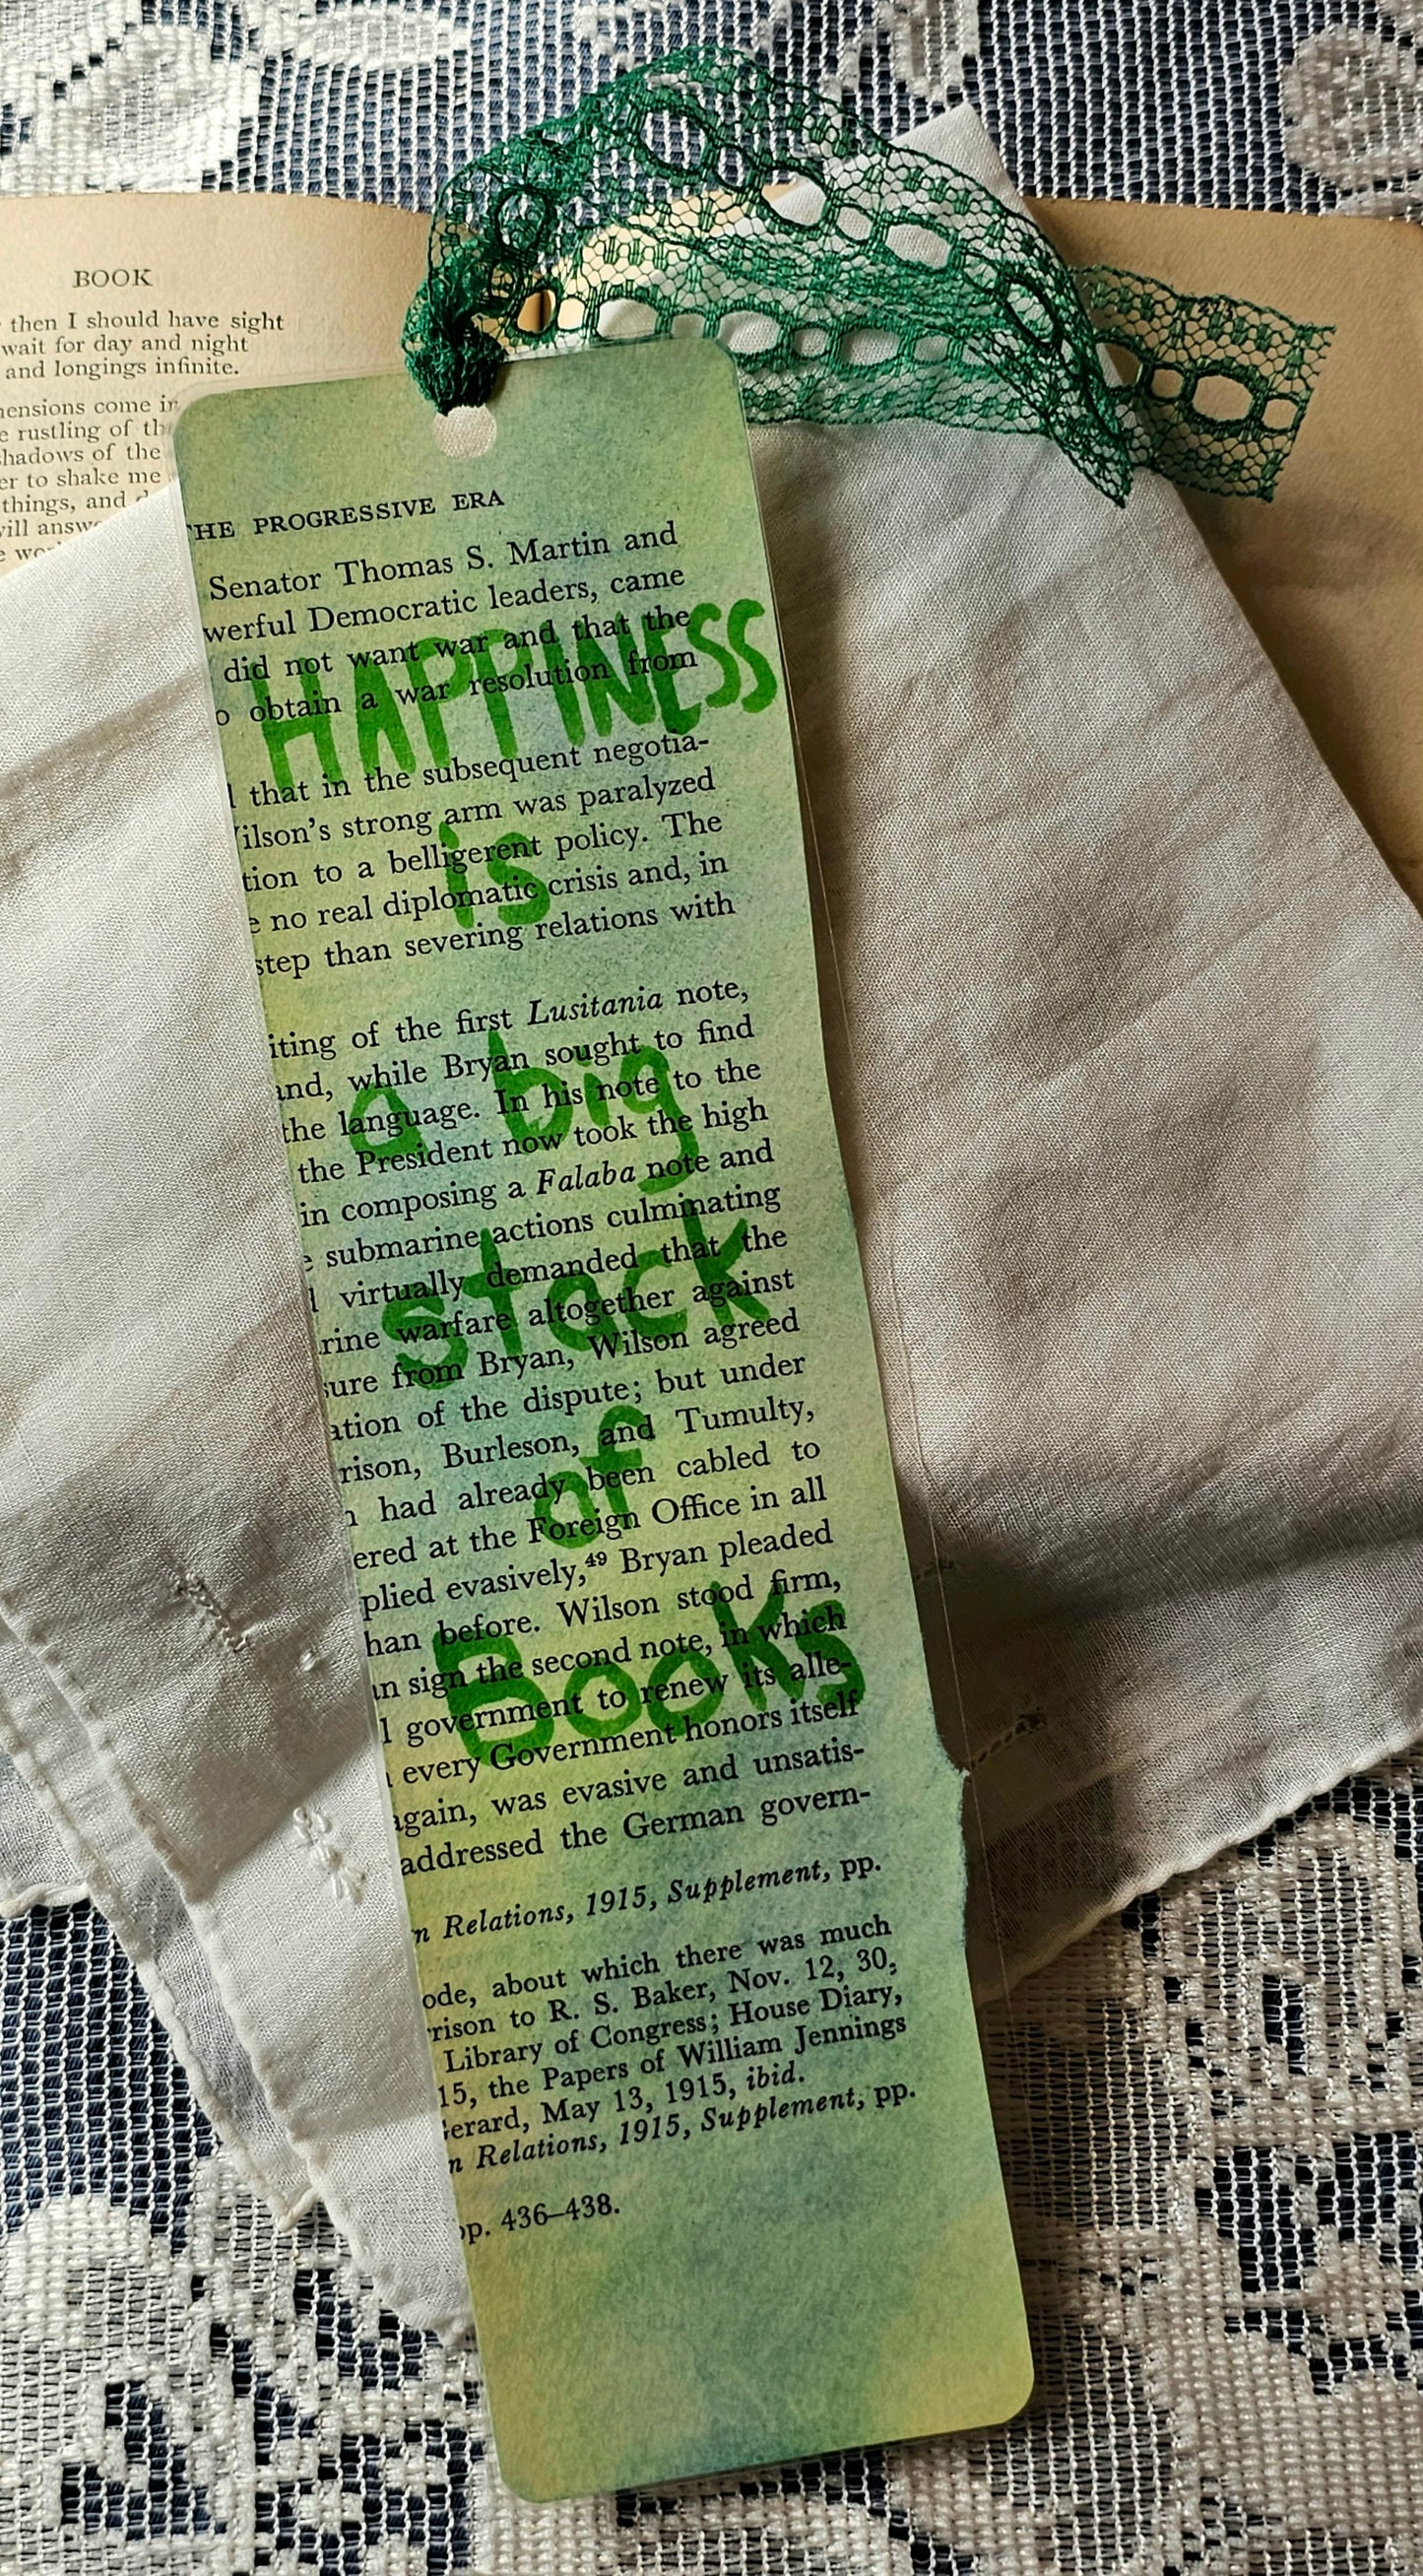 BOOK
then I should have sight
wait for day and night
and longings infinite.
come in
rustling of
of the
to shake me
things, and
THE PROGRESSIVE ERA
Senator Thomas S. Martin and
werful Democratic leaders, came
did not want war and that the
o obtain a war resolution from
HAPPINESS
l that in the subsequent negotia-
ilson's strong arm was paralyzed
tion to a belligerent policy. The
is
e no real diplomatic crisis and, in
step than severing relations with
iting of the first Lusitania note,
and, while Bryan sought to find
the language. In his note to the
a big
the President now took the high
in composing a Falaba note and
e submarine actions culminating
l virtually demanded that the
stack
rine warfare altogether against
sure from Bryan, Wilson agreed
ation of the dispute; but under
rison, Burleson, and Tumulty,
had already been cabled to
of
ered at the Foreign Office in all
plied evasively,⁴⁹ Bryan pleaded
han before. Wilson stood firm,
an sign the second note, in which
Books
l government to renew its alle-
every Government honors itself
again, was evasive and unsatis-
addressed the German govern-
n Relations, 1915, Supplement, pp.
ode, about which there was much
rison to R. S. Baker, Nov. 12, 30,
Library of Congress; House Diary,
15, the Papers of William Jennings
Gerard, May 13, 1915, ibid.
n Relations, 1915, Supplement, pp.
pp. 436–438.